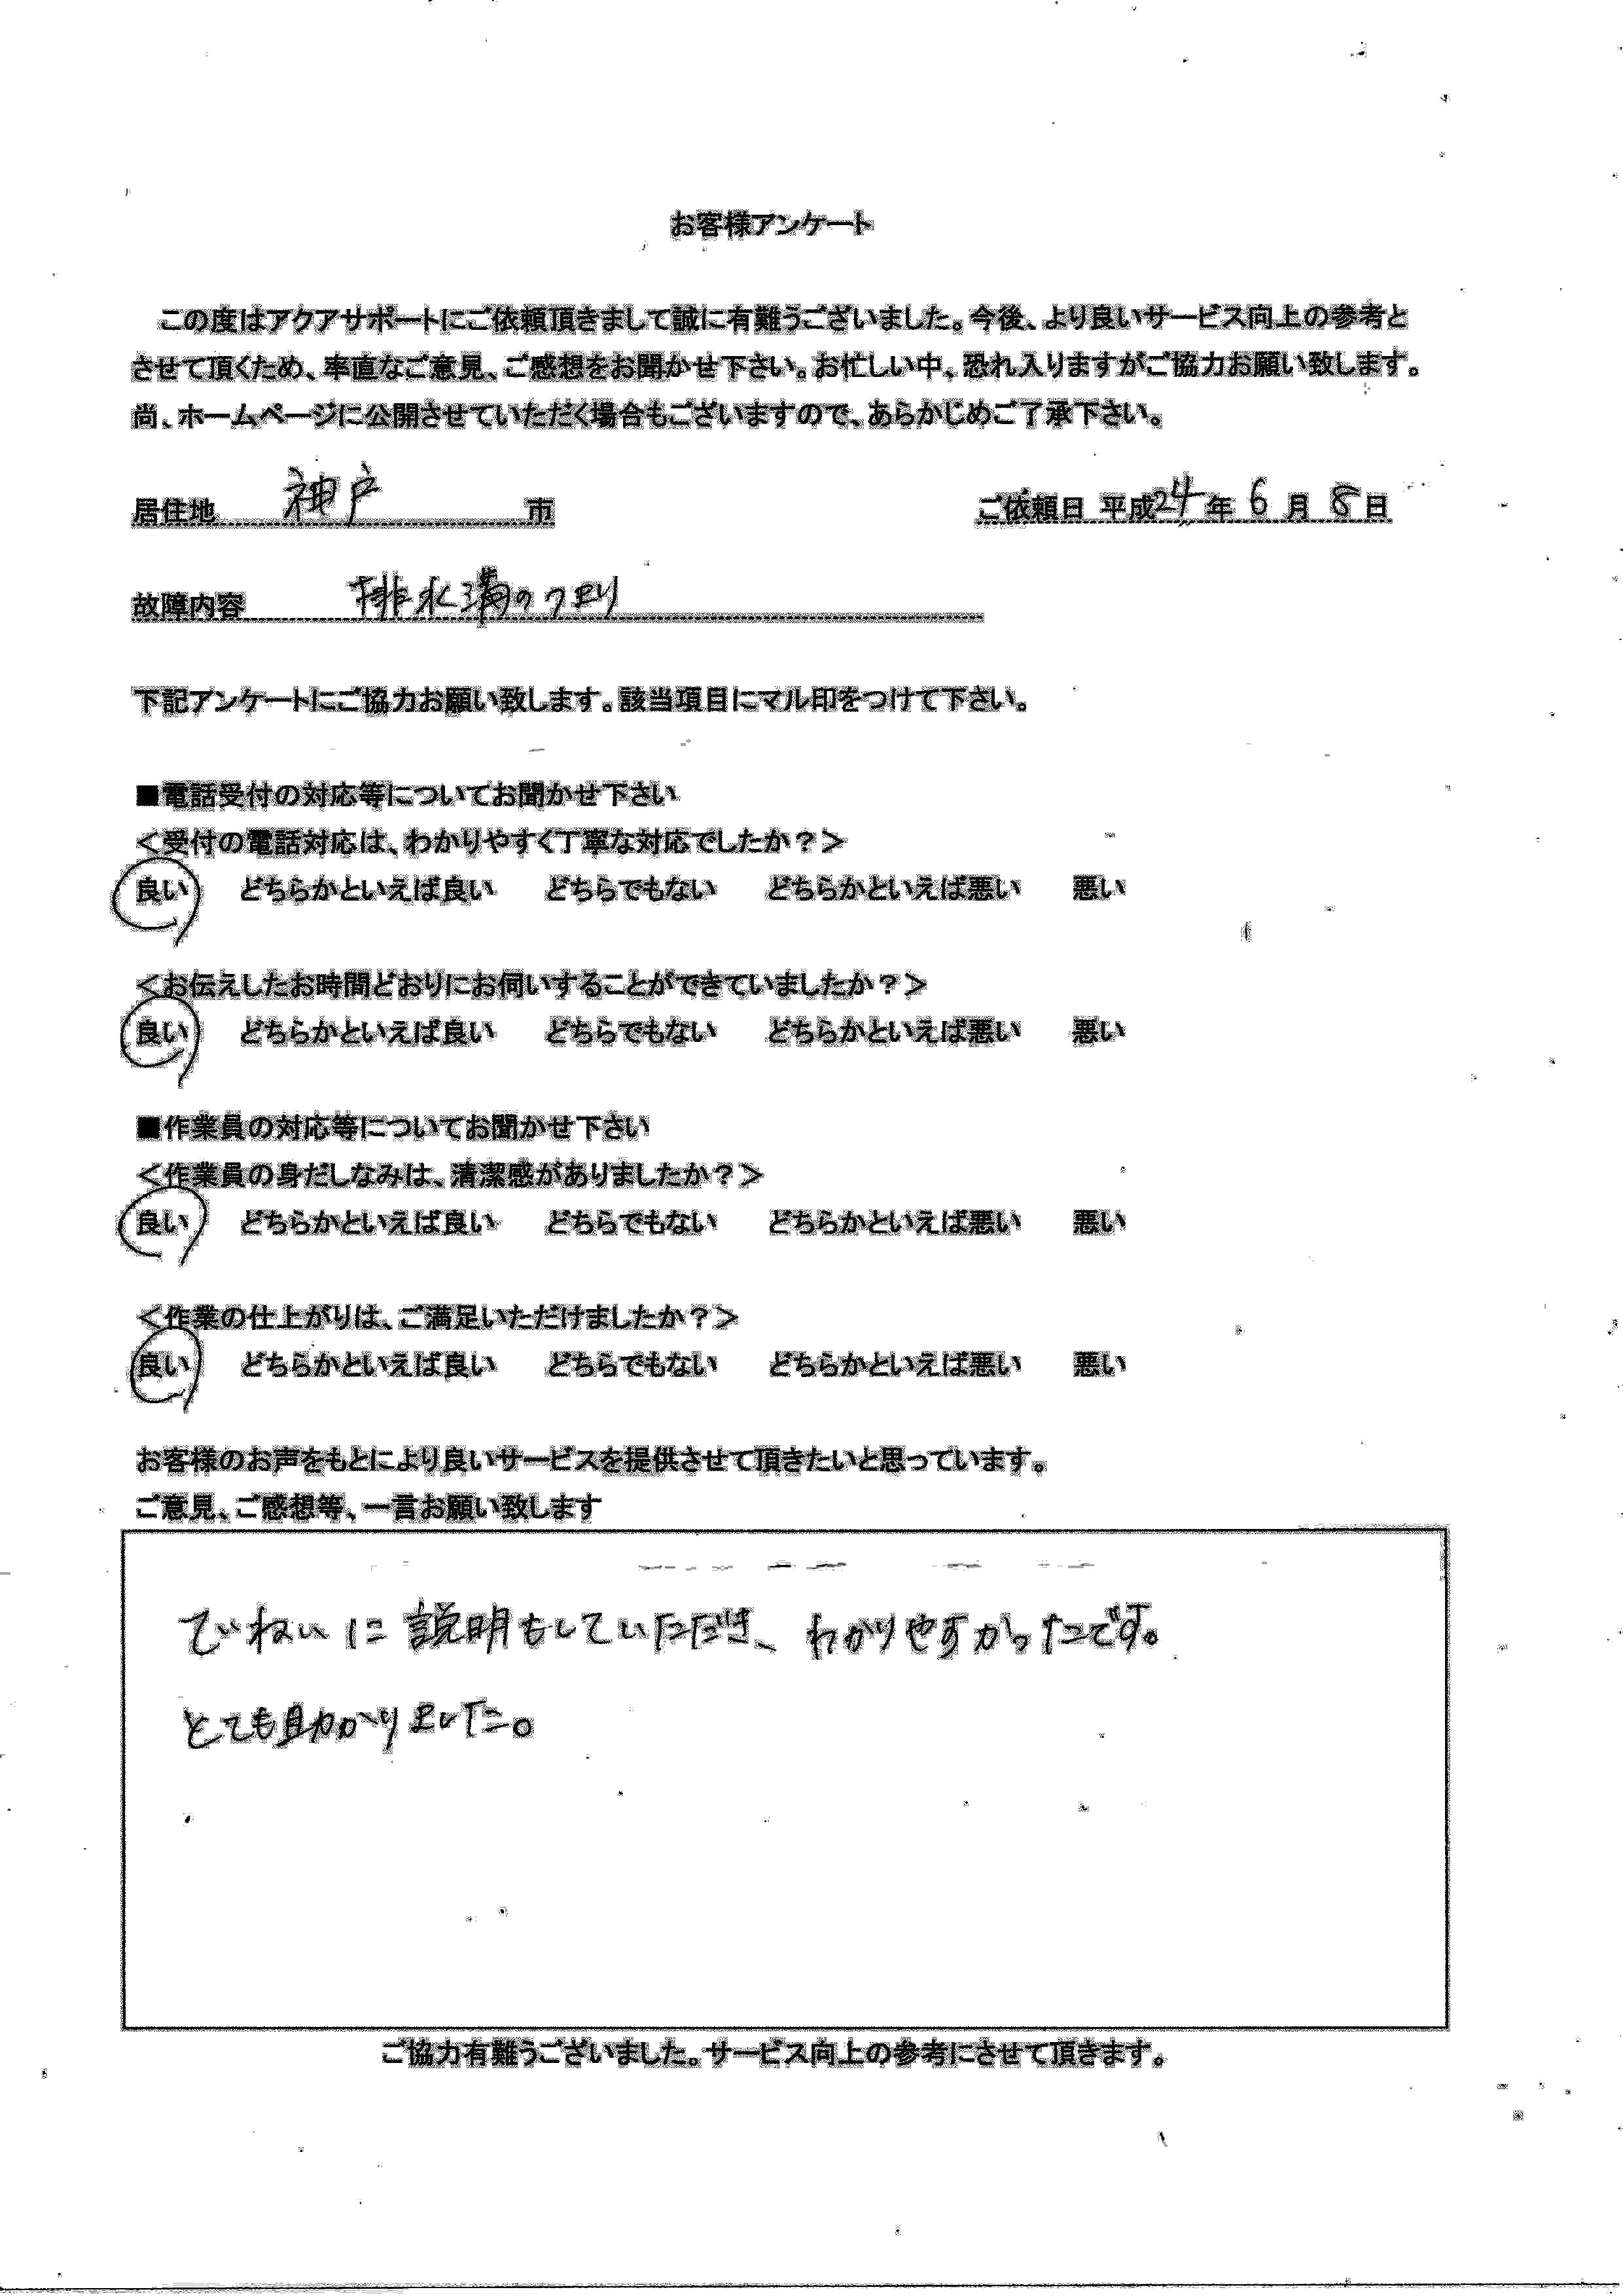 お客様アンケート
この度はアクアサポートにご依頼頂きまして誠に有難うございました。今後、より良いサービス向上の参考と
させて頂くため、率直なご意見、ご感想をお聞かせ下さい。お忙しい中、恐れ入りますがご協力お願い致します。
尚、ホームページに公開させていただく場合もございますので、あらかじめご了承下さい。
居住地 神戸 市 ご依頼日 平成24年6月8日
故障内容 排水溝のつまり
下記アンケートにご協力お願い致します。該当項目にマル印をつけて下さい。
■電話受付の対応等についてお聞かせ下さい
<受付の電話対応は、わかりやすく丁寧な対応でしたか?>
良い どちらかといえば良い どちらでもない どちらかといえば悪い 悪い
<お伝えしたお時間どおりにお伺いすることができていましたか?>
良い どちらかといえば良い どちらでもない どちらかといえば悪い 悪い
■作業員の対応等についてお聞かせ下さい
<作業員の身だしなみは、清潔感がありましたか?>
良い どちらかといえば良い どちらでもない どちらかといえば悪い 悪い
<作業の仕上がりは、ご満足いただけましたか?>
良い どちらかといえば良い どちらでもない どちらかといえば悪い 悪い
お客様のお声をもとにより良いサービスを提供させて頂きたいと思っています。
ご意見、ご感想等、一言お願い致します
ていねいに説明もしていただき、わかりやすかったです。
とても助かりました。
ご協力有難うございました。サービス向上の参考にさせて頂きます。